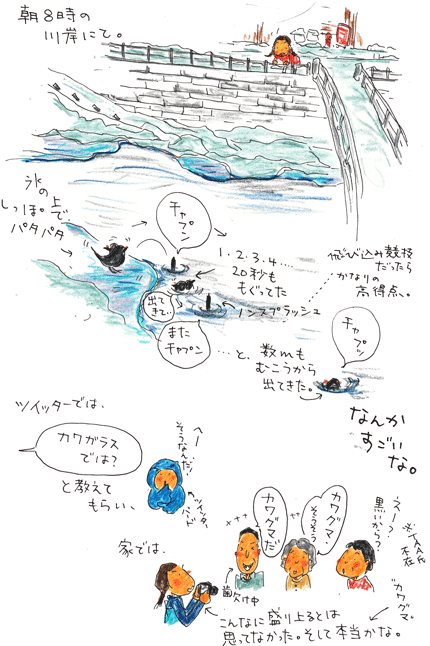 朝8時の
川岸にて。
氷の
上で
しっぽ
パタパタ
チャプン
1.2.3.4....
20秒も
もぐってた
飛び込み競技
だったら
かなりの
高得点、。
ノンスプラッシュ
出て
きて、
また
チャプン
…と、数mも
むこうから
出てきた。
チャプッ
なんか
すごい
な。
ツイッターでは、
カワガラス
では?
と教えて
もらい、
へー
そうなんだ!
ツイッター
家では、
カワグマだ
カワグマ、
そうそう
えーっ?
黒いから?
不在
"カワグマ"
歯欠け中
こんなに盛り上るとは
思ってなかった。そして本当かな。